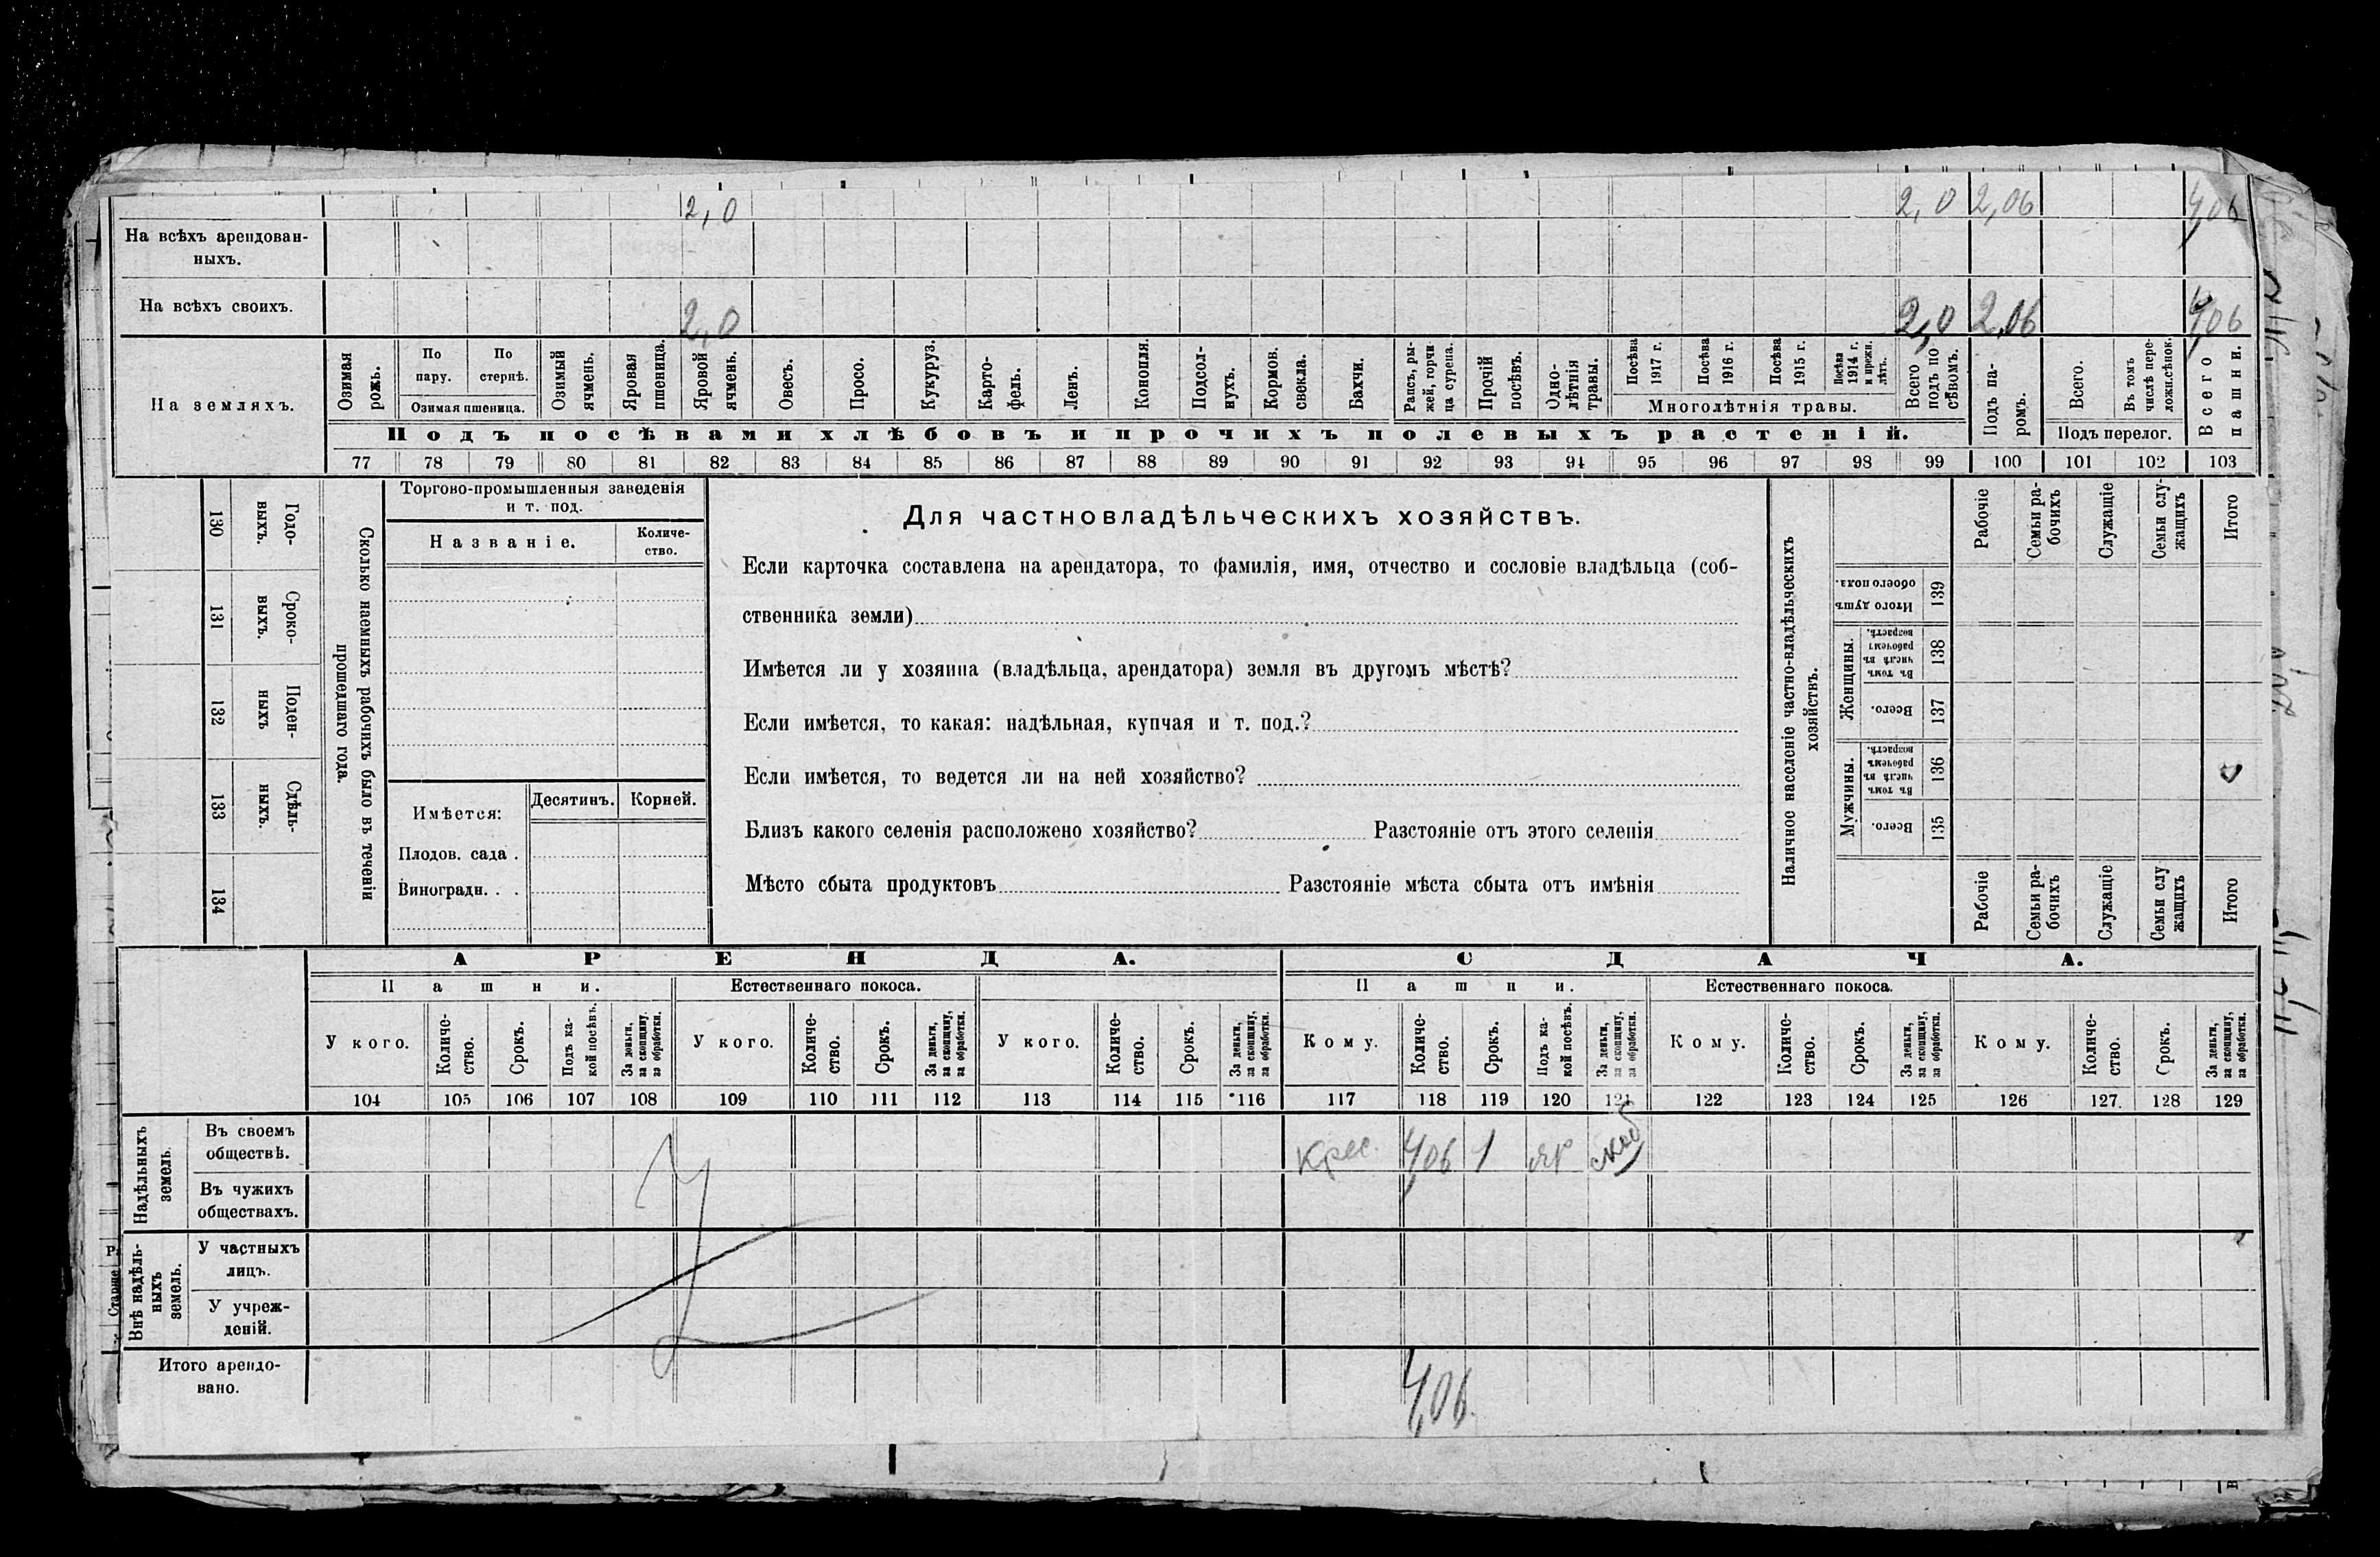 2,0 2,0 2,06 4,06
На всѣхъ арендован-
ныхъ.
На всѣхъ своихъ.
2,0 2,0 2,06 4,06
На земляхъ.
Озимая рожь.
По пару.
По стернѣ.
Озимая пшеница.
Озимый ячмень.
Яровая пшеница.
Яровой ячмень.
Овесъ.
Просо.
Кукуруз.
Карто-
фель.
Ленъ.
Конопля.
Подсол-
нухъ.
Кормов.
свекла.
Бахчи.
Рапсъ, ры-
жей, горчи-
ца сурепа.
Прочій
посѣвъ.
Одно-
лѣтнія
травы.
Посѣва
1917 г.
Посѣва
1916 г.
Посѣва
1915 г.
Посѣва
1914 г.
и прежн.
лѣтъ.
Многолѣтнія травы.
Всего
подъ по
сѣвомъ.
Подъ па-
ромъ.
Всего.
Въ томъ
числѣ пере-
ложн.сѣнок.
Подъ перелог.
Всего
пашни.
Подъ посѣвами хлѣбовъ и прочихъ полевыхъ растеній.
77 78 79 80 81 82 83 84 85 86 87 88 89 90 91 92 93 94 95 96 97 98 99 100 101 102 103
130 Годо-
выхъ.
131 Сроко-
выхъ.
132 Поден-
ныхъ
133 Сдѣль-
ныхъ.
134
Сколько наемныхъ рабочихъ было въ теченіи
прошедшаго года.
Торгово-промышленныя заведенія
и т. под.
Названіе.
Количе-
ство.
Имѣется:
Десятинъ.
Корней.
Плодов. сада .
Виноградн. . .
Для частновладѣльческихъ хозяйствъ.
Если карточка составлена на арендатора, то фамилія, имя, отчество и сословіе владѣльца (соб-
ственника земли)
Имѣется ли у хозяина (владѣльца, арендатора) земля въ другомъ мѣстѣ?
Если имѣется, то какая: надѣльная, купчая и т. под.?
Если имѣется, то ведется ли на ней хозяйство?
Близъ какого селенія расположено хозяйство? Разстояніе отъ этого селенія
Мѣсто сбыта продуктовъ Разстояніе мѣста сбыта отъ имѣнія
Наличное населеніе частно-владѣльческихъ
хозяйствъ.
Рабочіе
Семьи ра-
бочихъ
Служащіе
Семьи слу-
жащихъ
Итого
Итого душъ
обоего пола.
139
Женщины.
Въ томъ
числѣ въ
рабочемъ
возрастѣ.
138
Всего.
137
Мужчины.
Въ томъ
числѣ въ
рабочемъ
возрастѣ.
136
Всего.
135
Рабочіе
Семьи ра-
бочихъ
Служащіе
Семьи слу
жащихъ
Итого
АРЕНДА.
СДАЧА.
Пашни.
Естественнаго покоса.
Пашни.
Естественнаго покоса.
У кого.
Количе-
ство.
Срокъ.
Подъ ка-
кой посѣвъ.
За деньги,
за скопщину,
за обработки.
У кого.
Количе-
ство.
Срокъ.
За деньги,
за скопщину,
за обработки.
У кого.
Количе-
ство.
Срокъ.
За деньги,
за скопщину,
за обработки.
Кому.
Количе-
ство.
Срокъ.
Подъ ка-
кой посѣвъ.
За деньги,
за скопщину,
за обработки.
Кому.
Количе-
ство.
Срокъ.
За деньги,
за скопщину,
за обработки.
Кому.
Количе-
ство.
Срокъ.
За деньги,
за скопщину,
за обработки.
104 105 106 107 108 109 110 111 112 113 114 115 116 117 118 119 120 121 122 123 124 125 126 127. 128 129
Надѣльныхъ
земель.
Въ своемъ
обществѣ.
Крес. 4,06 1 яр
Въ чужихъ
обществахъ.
Внѣ надѣль-
ныхъ
земель.
У частныхъ
лицъ.
У учреж-
деній.
Итого арендо-
вано.
4,06